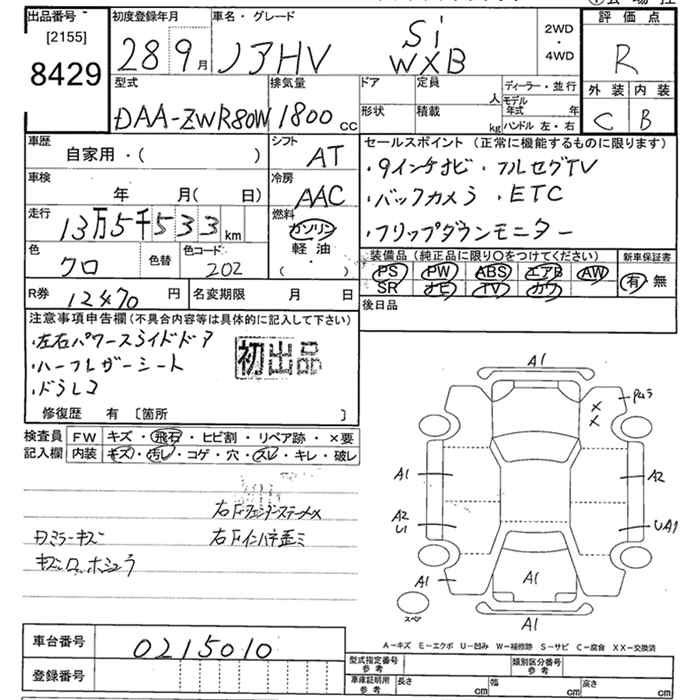 出品番号 初度登録年月 車名・グレード 評価点
[2155]
8429
28 9月 ノアHV Si WXB 2WD・4WD R
型式 排気量 ドア 定員 人 ディーラー・並行 外装 内装
DAA-ZWR80W 1800cc 形状 積載 kg モデル年式 年 ハンドル 左・右 C B
車歴 シフト セールスポイント (正常に機能するものに限ります)
自家用・( ) AT ・9インチナビ・フルセグTV
車検 冷房
年 月( 日) AAC ・バックカメラ・ETC
走行 燃料
13万5千533km ガソリン ・フリップダウンモニター
色 色替 色コード 軽油 装備品 (純正品に限り○をつけてください) 新車保証書
クロ 202 ・( ) PS PW ABS エアB AW 有・無
SR ナビ TV カワ
R券 12470円 名変期限 月 日 後日品
注意事項申告欄(不具合内容等は具体的に記入して下さい)
・左右パワースライドドア
・ハーフレザーシート 初出品
・ドラレコ
修復歴 有 〔箇所 〕
検査員 FW キズ・飛石・ヒビ割・リペア跡・×要
記入欄 内装 キズ・汚レ・コゲ・穴・スレ・キレ・破レ
右FフェンダーステーメX
右Fインパネ歪ミ
A1
X
X
A1 A2
A2 U1 UA1
A1 A1
スペア
A1
車台番号 0215010
A-キズ E-エクボ U-凹み W-補修跡 S-サビ C-腐食 XX-交換済
登録番号 型式指定番号 参考 類別区分番号 参考
車庫証明用 参考 長さ cm 幅 cm 高さ cm